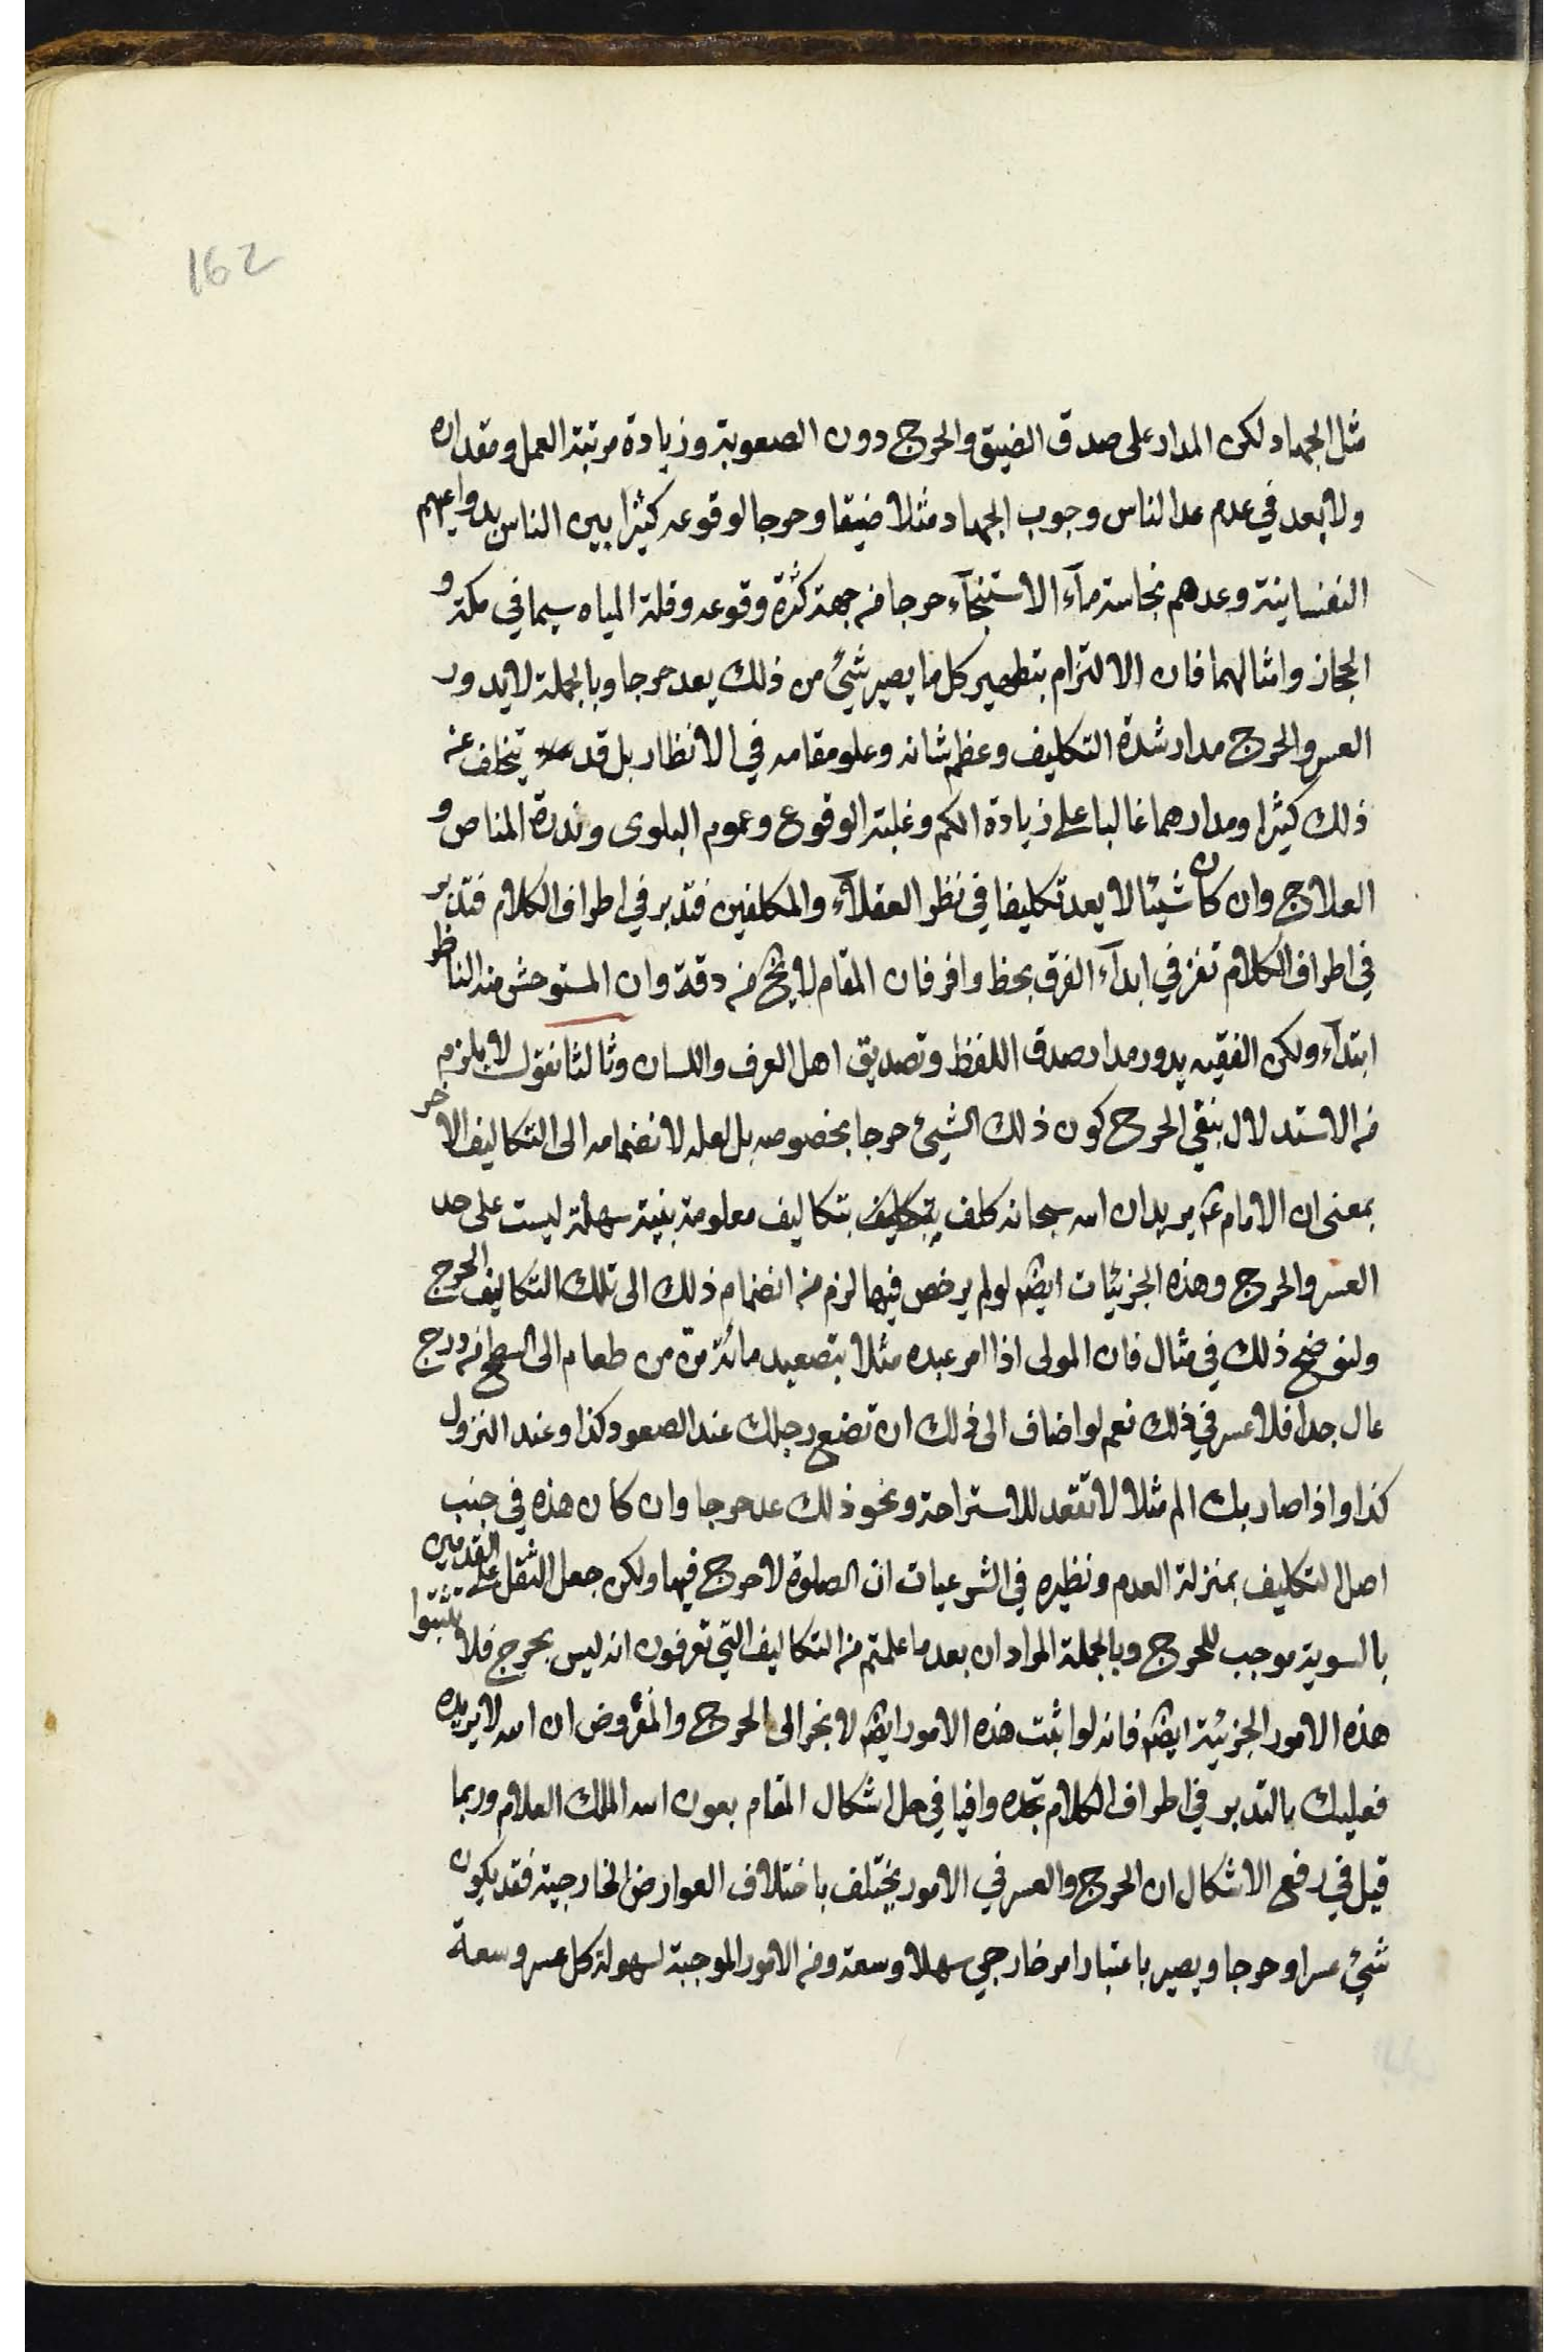 162
مثل الجهاد لكن المدار على صدق الضيق والحرج دون الصعوبة وزيادة مرتبة العمل ومقداره
ولا بعد في عدم عد الناس وجوب الجهاد مثلا ضيقا وحرجا لوقوعه كثيرا بين الناس بدواعيهم
النفسانية وعدهم نجاسة ماء الاستنجآء حرجا من جهة كثرة وقوعه وقلة المياه سيما في مكة و
الحجاز وامثالهما فان الالتزام بتطهير كل ما يصير شيئ من ذلك يعد حرجا وبالجملة لا يدور
العسر والحرج مدار شدة التكليف وعظم شانه وعلو مقامه في الانظار بل قد يتخلف عنه
ذلك كثيرا ومدارهما غالبا على زيادة الكم وغلبة الوقوع وعموم البلوى وندرة المناص و
العلاج وان كان شيئا لا يعد تكليفا في نظر العقلآء والمكلفين فتدبر في اطراف الكلام فتدبر
في اطراف الكلام تفز في ابدآء الفرق بحظ وافر فان المقام لا يخ من دقة وان المستوحش منه الناظر
ابتدآء ولكن الفقيه يدور مدار صدق اللفظ وتصديق اهل العرف واللسان وثالثا نقول لا يلزم
من الاستدلال بنفي الحرج كون ذلك الشيئ حرجا بخصوصه بل لعله لانضمامه الى التكاليف الاخر
بمعنى ان الامام ع يريد ان الله سبحانه كلف بتكليف بتكاليف معلومة بينة سهلة ليست على حد
العسر والحرج وهذه الجزئيات ايضا لو لم يرخص فيها لزم من انضمام ذلك الى تلك التكاليف الحرج
ولنوضح ذلك في مثال فان المولى اذا امر عبده مثلا بتصعيد مائة من من طعام الى السطح من درج
عال جدا فلا عسر في ذلك نعم لو اضاف الى ذلك ان تضع رجلك عند الصعود كذا وعند النزول
كذا واذا صار بك الم مثلا لا تقعد للاستراحة ونحو ذلك عد حرجا وان كان هذه في جنب
اصل التكليف بمنزلة العدم ونظيره في الشرعيات ان الصلوة لا حرج فيها ولكن جعل الثقل على القدمين
بالسوية موجب للحرج وبالجملة المراد ان بعد ما علمتم من التكاليف التي تعرفون انه ليس بحرج فلا تثبتوا
هذه الامور الجزئية ايضا فانه لو اثبت هذه الامور ايضا لانجر الى الحرج والمفروض ان الله لا يريده
فعليك بالتدبر في اطراف الكلام تجده وافيا في حل اشكال المقام بعون الله الملك العلام وربما
قيل في رفع الاشكال ان الحرج والعسر في الامور يختلف باختلاف العوارض الخارجية فقد يكون
شيئ عسرا وحرجا ويصير باعتبار امر خارجي سهلا وسعة ومن الامور الموجبة لسهولة كل عسر وسعة